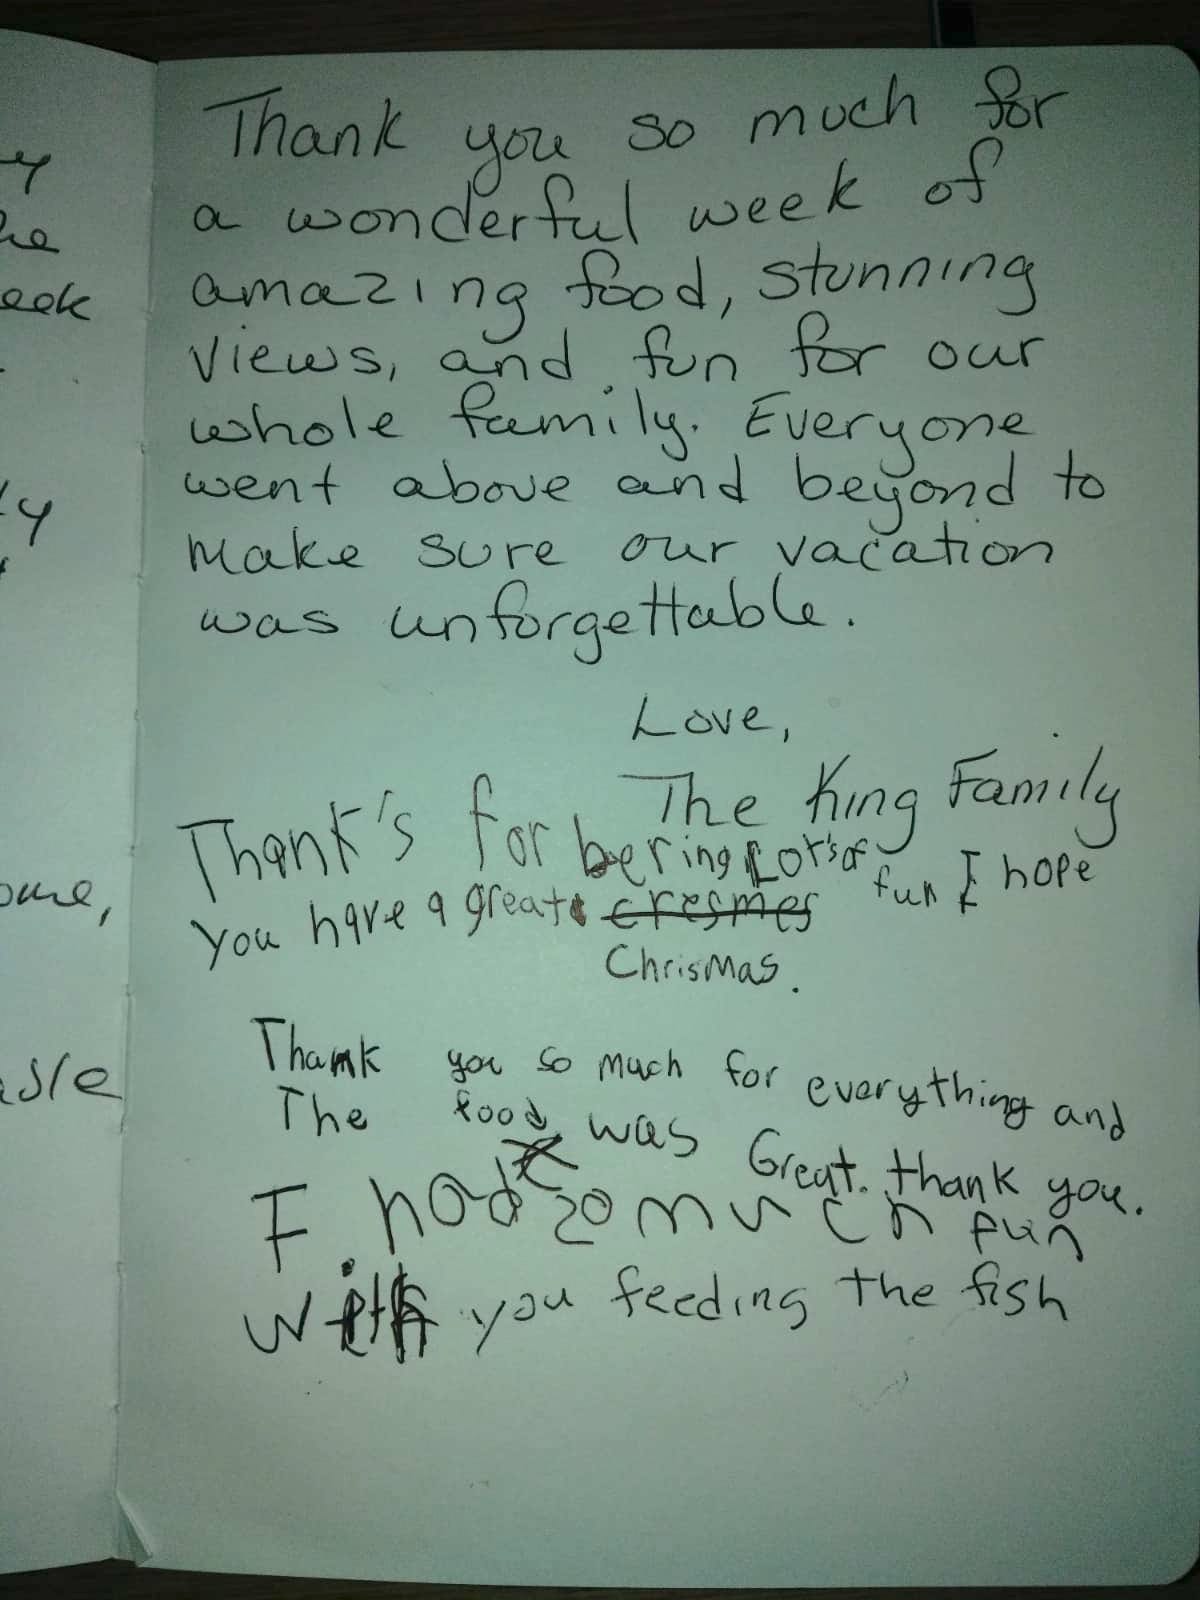 y
he
eek
ly
ome,
able
Thank you so much for
a wonderful week of
amazing food, stunning
views, and fun for our
whole family. Everyone
went above and beyond to
make sure our vacation
was unforgettable.
Love,
The King Family
Thank's for bering Lot's of fun I hope
you have a great cresmes
Chrismas.
Thank you so much for everything and
The food was Great. thank you.
I had so much fun
with you feeding the fish